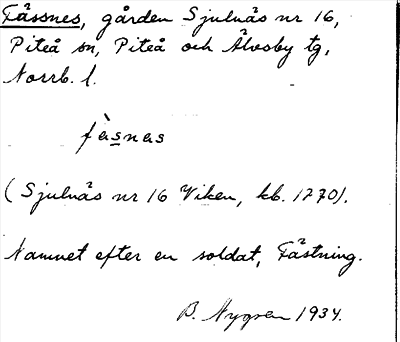 Fässnes, gården Sjulnäs nr 16,
Piteå sn, Piteå och Älvsby tg,
Norrb. l.
fàsnas
(Sjulnäs nr 16 Viken, kb. 1770).
Namnet efter en soldat, Fästning.
B. Nygren 1934.